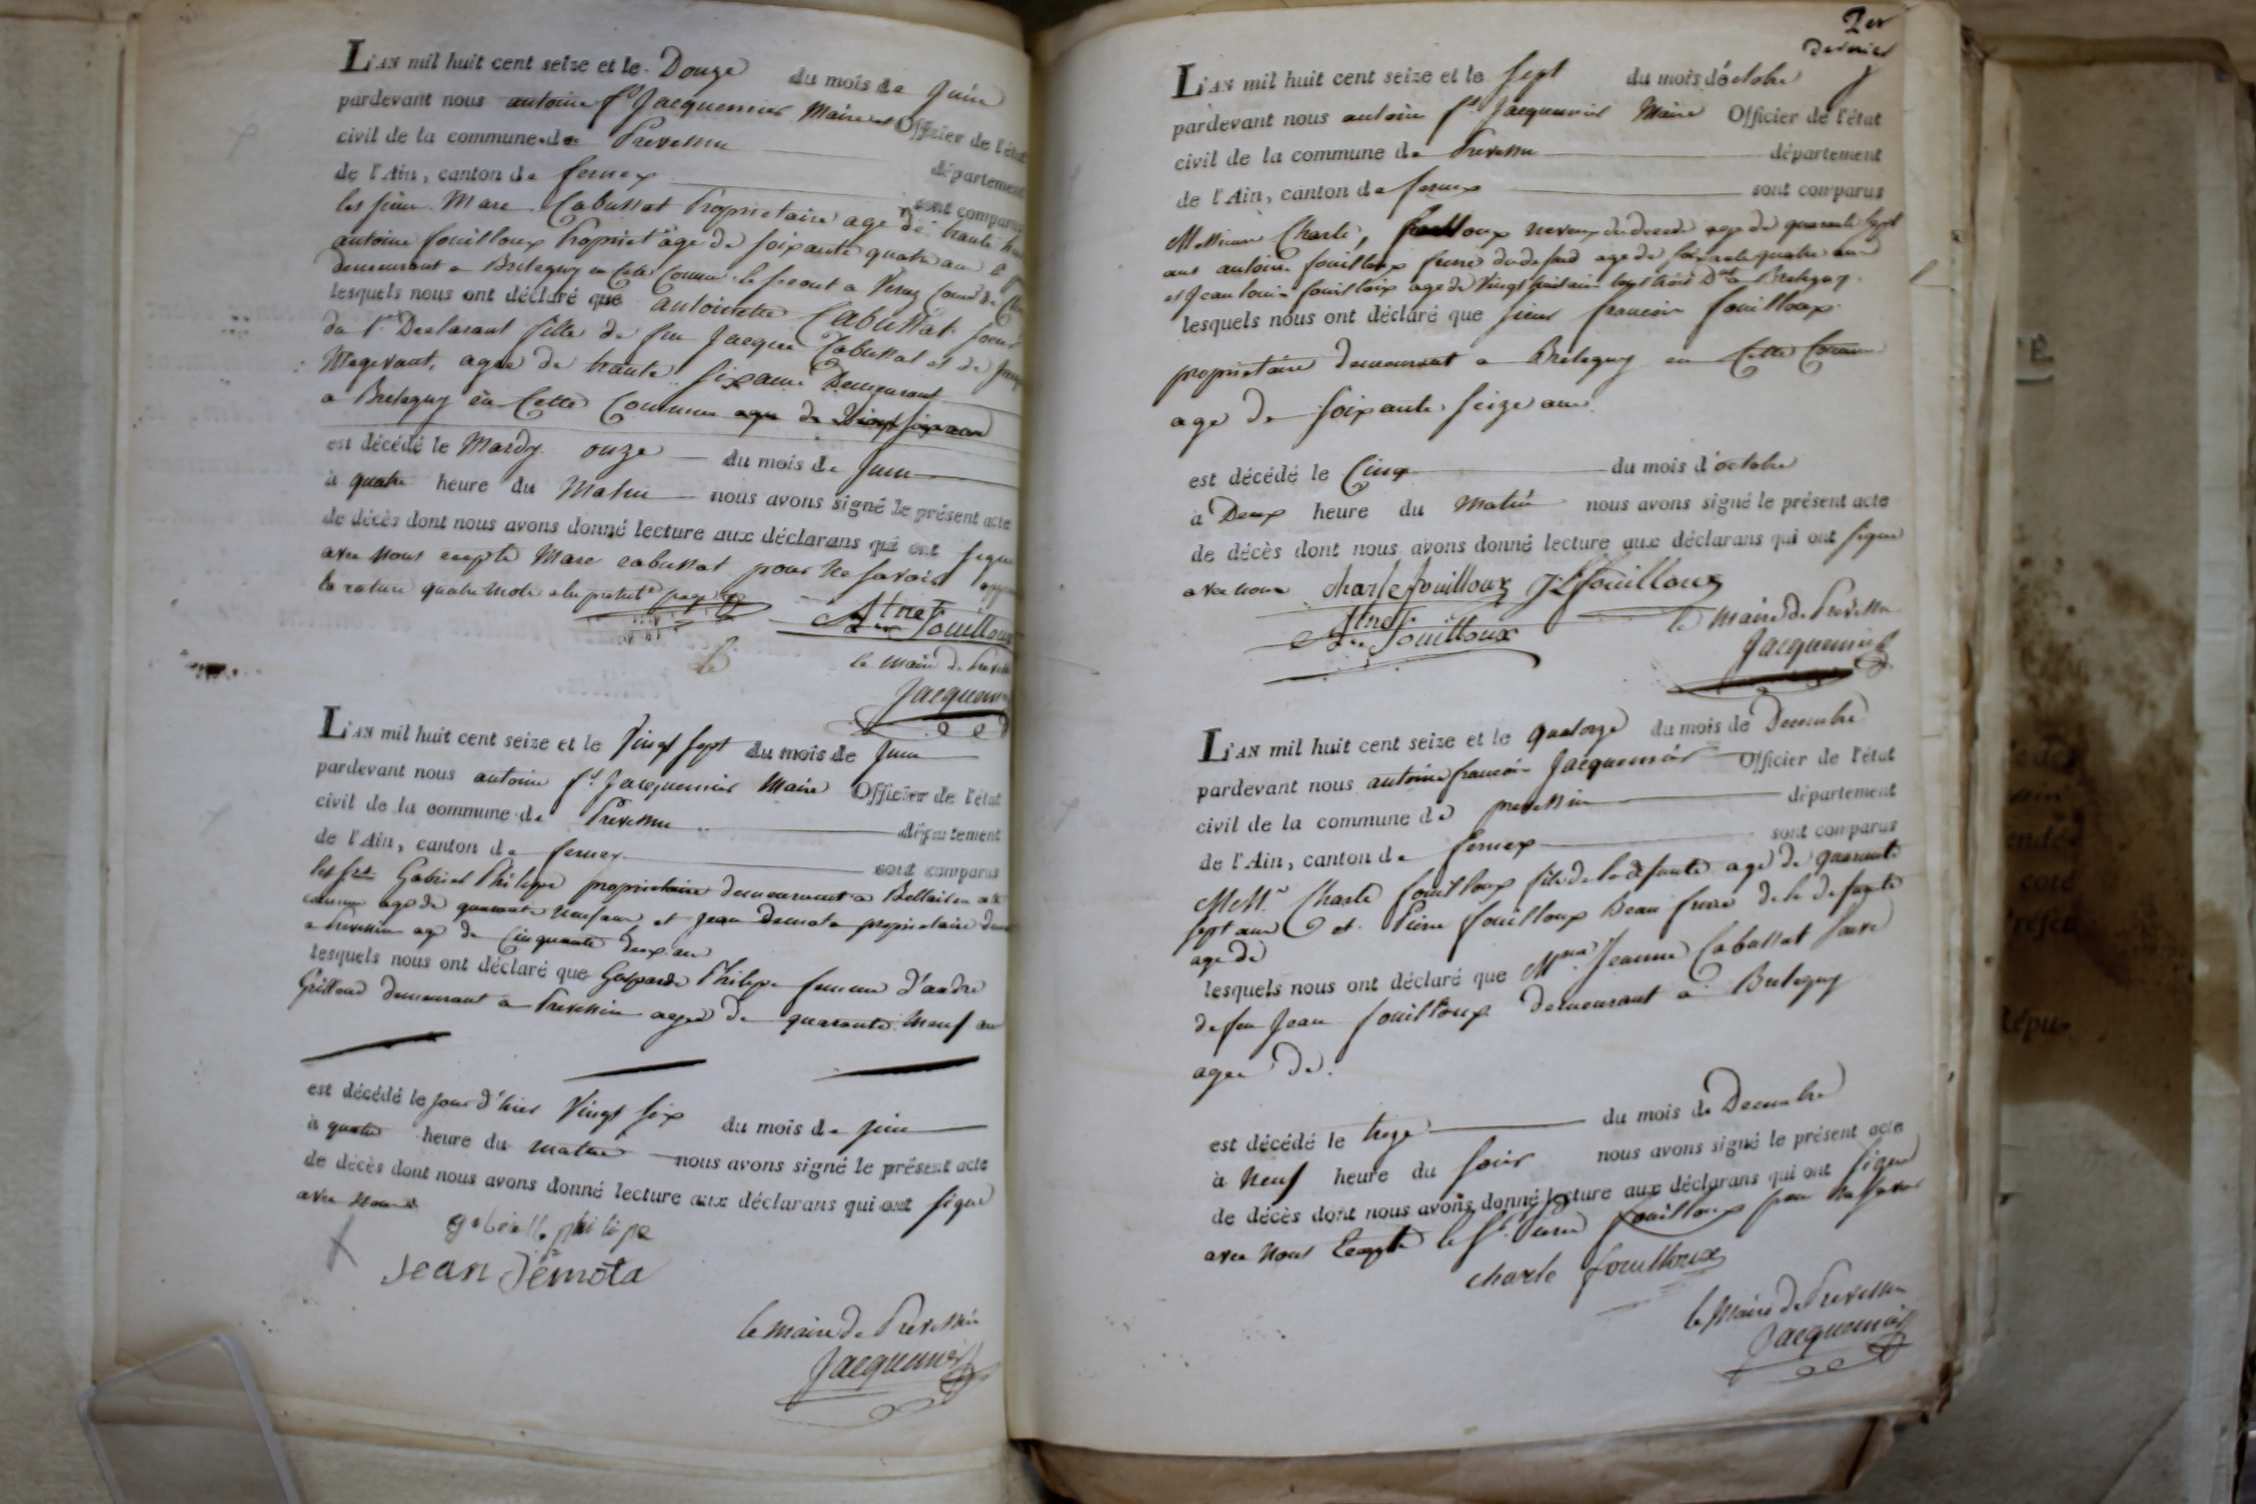 L'AN mil huit cent seize et le Douze du mois de Juin
pardevant nous antoine fs Jacquemier Maire et Officier de l'état
civil de la commune de Prevessin département
de l'Ain, canton de fernex sont comparus
les sieur Marc Cabussat Proprietaire age de trante
antoine fouilloux Propriet.re age de soixante quatre an
demeurant a Bretegny en Cette Commune le second a Versoy
lesquels nous ont déclaré que antoinette Cabussat soeur
du 1er Declarant fille de feu Jacque Cabussat et de
Megevant, agee de trante six ans Demeurant
a Bretegny en Cette Commune age de Vingt six ans
est décédé le Mardy onze du mois de Juin
à quatre heure du Matin nous avons signé le présent acte
de décès dont nous avons donné lecture aux déclarans qui ont signe
avec nous excepte Marc cabussat pour ne savoir
la rature quatre mots a la presente page
Atne fouilloux
le maire de Preves
Jacquem
L'AN mil huit cent seize et le Vingt sept du mois de Juin
pardevant nous antoine fs Jacquemier Maire Officier de l'état
civil de la commune de Prevessin département
de l'Ain, canton de fernex sont comparus
les srs Gabriel Philippe proprietaire demeurant a
commune age de quarante neuf ans et Jean Demota proprietaire
a Prevessin age de Cinquante deux ans
lesquels nous ont déclaré que Gasparde Philipe femme d'andre
demeurant a Prevessin agee de quarante neuf an
est décédé le jour d'hier Vingt six du mois de juin
à quatre heure du matin nous avons signé le présent acte
de décès dont nous avons donné lecture aux déclarans qui ont signe
avec nous
gabrielle philipe
Jean Demota
le maire de Prevessin
Jacquemier
2er
dernier
L'AN mil huit cent seize et le sept du mois d'octobre
pardevant nous antoine fs Jacquemier Maire Officier de l'état
civil de la commune de Prevessin département
de l'Ain, canton de fernex sont comparus
Messieurs Charle, fouilloux neveux du decede age de quarante sept
ans antoine fouilloux frere du defunt age de soixante quatre ans
et Jean louis fouilloux age de Vingt huit ans tous trois Dt a Bretegny.
lesquels nous ont déclaré que sieur francois fouilloux
proprietaire demeurant a Bretegny en Cette Commune
age de soixante seize ans
est décédé le Cinq du mois d'octobre
à Deux heure du Matin nous avons signé le présent acte
de décès dont nous avons donné lecture aux déclarans qui ont signe
avec nous charle fouilloux JL fouilloux
Atne fouilloux
le Maire de Prevessin
Jacquemier
L'AN mil huit cent seize et le quatorze du mois de Decembre
pardevant nous antoine francois Jacquemier Officier de l'état
civil de la commune de prevessin département
de l'Ain, canton de fernex sont comparus
MM.rs Charle fouilloux fils de la defunte age de quarante
sept ans et Pierre fouilloux Beau frere de la defunte
age de
lesquels nous ont déclaré que Jeanne Cabussat Vauve
de feu Jean fouilloux demeurant a Bretegny
agee de.
est décédé le treze du mois de Decembre
à Neuf heure du soir nous avons signé le présent acte
de décès dont nous avons donné lecture aux déclarans qui ont signe
avec nous Excepte le sr Pierre fouilloux pour ne savoir
charle fouilloux
le Maire de Prevessin
Jacquemier